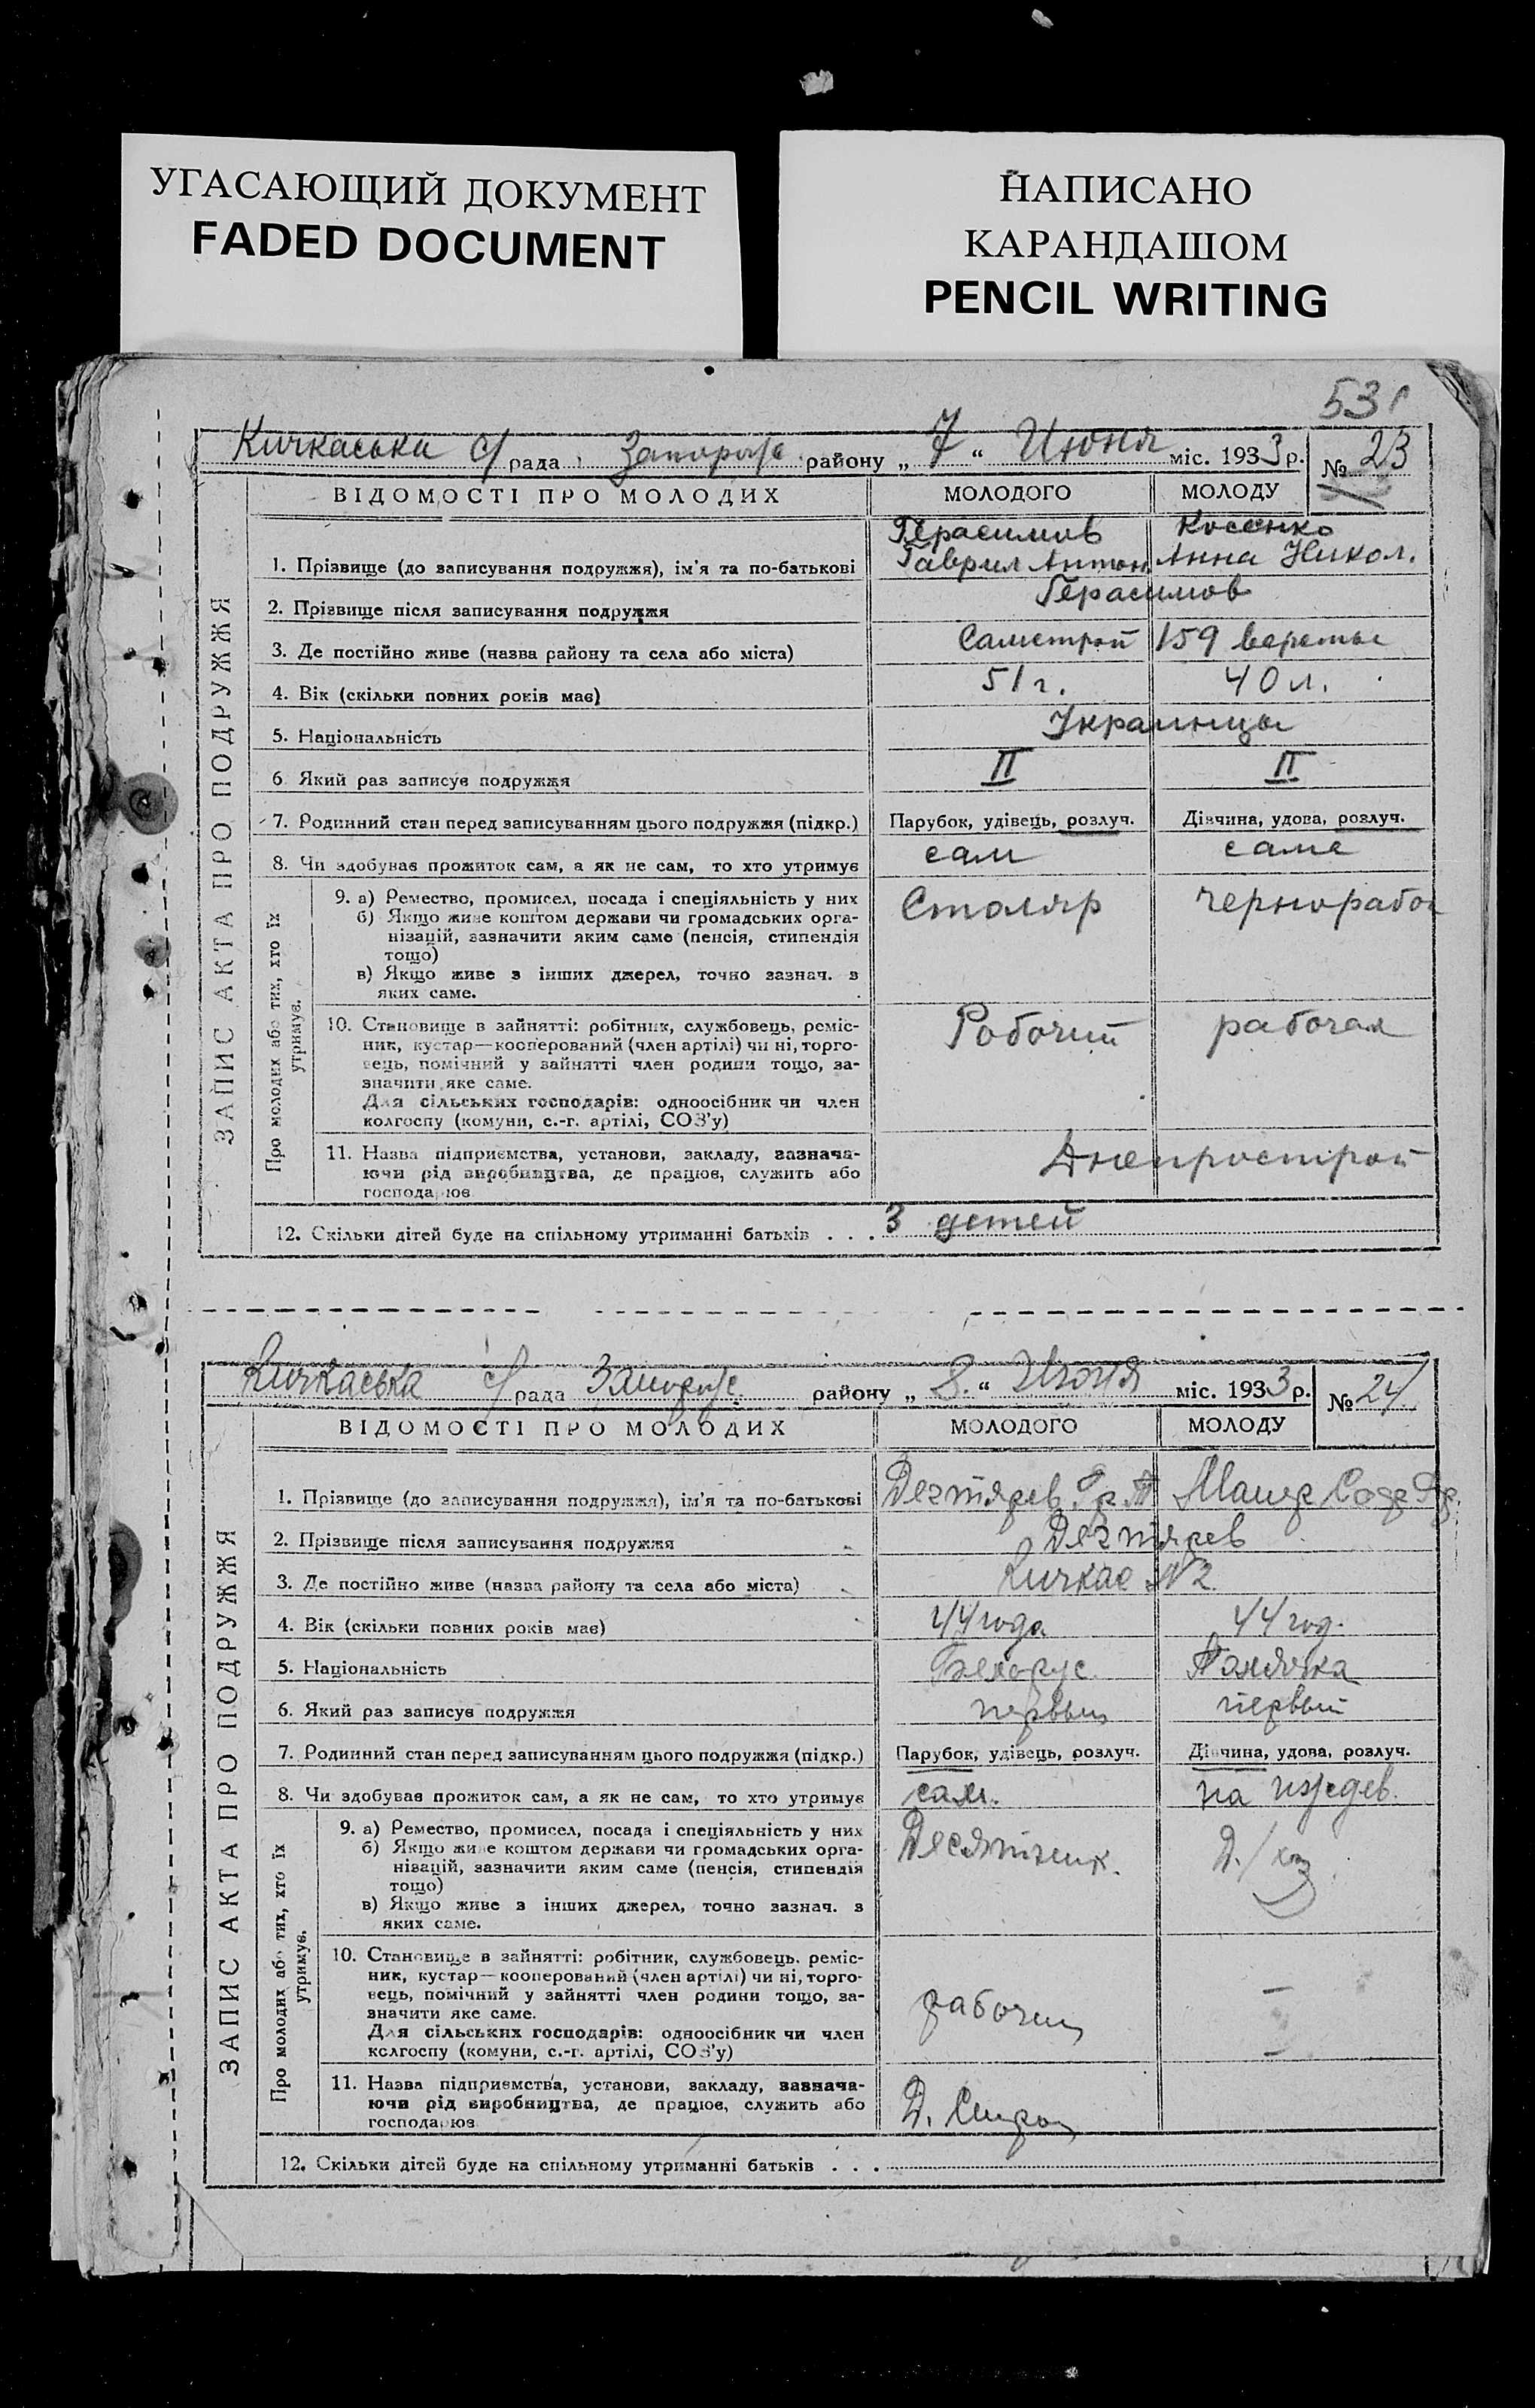 УГАСАЮЩИЙ ДОКУМЕНТ
FADED DOCUMENT
НАПИСАНО
КАРАНДАШОМ
PENCIL WRITING
531
Кичкаська с/рада Запорізь району „7“ Июня міс. 1933 р. № 23
ЗАПИС АКТА ПРО ПОДРУЖЖЯ
ВІДОМОСТІ ПРО МОЛОДИХ МОЛОДОГО МОЛОДУ
Герасимов Косенко
1. Прізвище (до записування подружжя), ім'я та по-батькові Гаврил Антон Анна Никол.
2. Прізвище після записування подружжя Герасимов
3. Де постійно живе (назва району та села або міста) Самстрой 159 версты
4. Вік (скільки повних років має) 51 г. 40 л.
5. Національність Украинцы
6 Який раз записує подружжя II II
7. Родинний стан перед записуванням цього подружжя (підкр.) Парубок, удівець, розлуч. Дівчина, удова, розлуч.
8. Чи здобував прожиток сам, а як не сам, то хто утримує сам сама
Про молодих або тих, хто їх утримує.
9. а) Ремество, промисел, посада і спеціяльність у них Столяр чернорабоч
б) Якщо живе коштом держави чи громадських орга-
нізацій, зазначити яким саме (пенсія, стипендія
тощо)
в) Якщо живе з інших джерел, точно зазнач. з
яких саме.
10. Становище в зайнятті: робітник, службовець, реміс- Робочий рабочая
ник, кустар—кооперований (член артілі) чи ні, торго-
вець, помічний у зайнятті член родини тощо, за-
значити яке саме.
Для сільських господарів: одноосібник чи член
колгоспу (комуни, с.-г. артілі, СОЗ'у)
11. Назва підприємства, установи, закладу, зазнача- Днепрострой
ючи рід виробництва, де працює, служить або
господарює
12. Скільки дітей буде на спільному утриманні батьків . . . 3 детей
Кичкаська с/рада Запоріж. району „8.“ Июня міс. 1933 р. № 24
ЗАПИС АКТА ПРО ПОДРУЖЖЯ
ВІДОМОСТІ ПРО МОЛОДИХ МОЛОДОГО МОЛОДУ
1. Прізвище (до записування подружжя), ім'я та по-батькові Дегтярев Гр.
2. Прізвище після записування подружжя Дегтярев
3. Де постійно живе (назва району та села або міста) Кичкас №2
4. Вік (скільки повних років має) 44 года 44 год.
5. Національність Белорус. Полячка
6. Який раз записує подружжя первый первый
7. Родинний стан перед записуванням цього подружжя (підкр.) Парубок, удівець, розлуч. Дівчина, удова, розлуч.
8. Чи здобував прожиток сам, а як не сам, то хто утримує сам. на иждев.
Про молодих або тих, хто їх утримує.
9. а) Ремество, промисел, посада і спеціяльність у них Десятник. Д./хоз
б) Якщо живе коштом держави чи громадських орга-
нізацій, зазначити яким саме (пенсія, стипендія
тощо)
в) Якщо живе з інших джерел, точно зазнач. з
яких саме.
10. Становище в зайнятті: робітник, службовець, реміс-
ник, кустар—кооперований (член артілі) чи ні, торго-
вець, помічний у зайнятті член родини тощо, за- рабочий —
значити яке саме.
Для сільських господарів: одноосібник чи член
колгоспу (комуни, с.-г. артілі, СОЗ'у)
11. Назва підприємства, установи, закладу, зазнача- Д. Строй
ючи рід виробництва, де працює, служить або
господарює
12. Скільки дітей буде на спільному утриманні батьків . . .